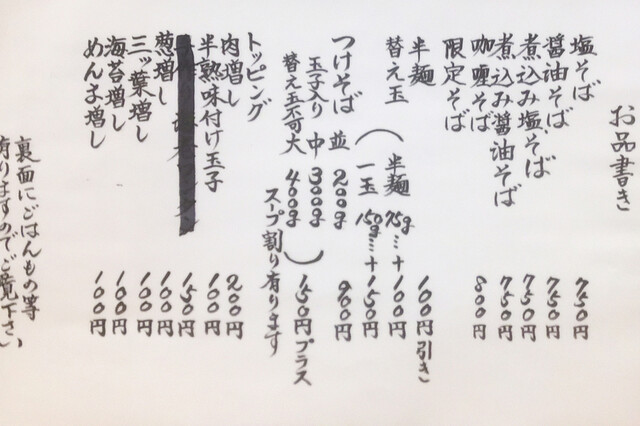 お品書き
塩そば 750円
醤油そば 750円
煮込み塩そば 750円
煮込み醤油そば 750円
咖喱そば 800円
限定そば
半麺 100円引き
替え玉 (半麺 75g…+100円
一玉 150g…+150円
つけそば 並 200g 900円
玉子入り 中 300g
替え玉不可 大 400g) 150円プラス
スープ割り有ります
トッピング
肉増し 200円
半熟味付け玉子 100円
150円
葱増し 100円
三ッ葉増し 100円
海苔増し 100円
めんま増し 100円
裏面にごはんもの等
有りますのでご覧下さい